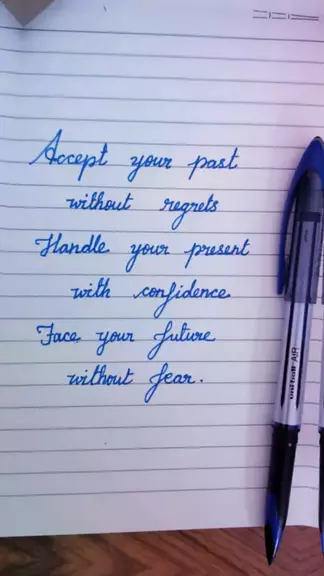 Accept your past
without regrets
Handle your present
with confidence
Face your future
without fear.
uniball AIR